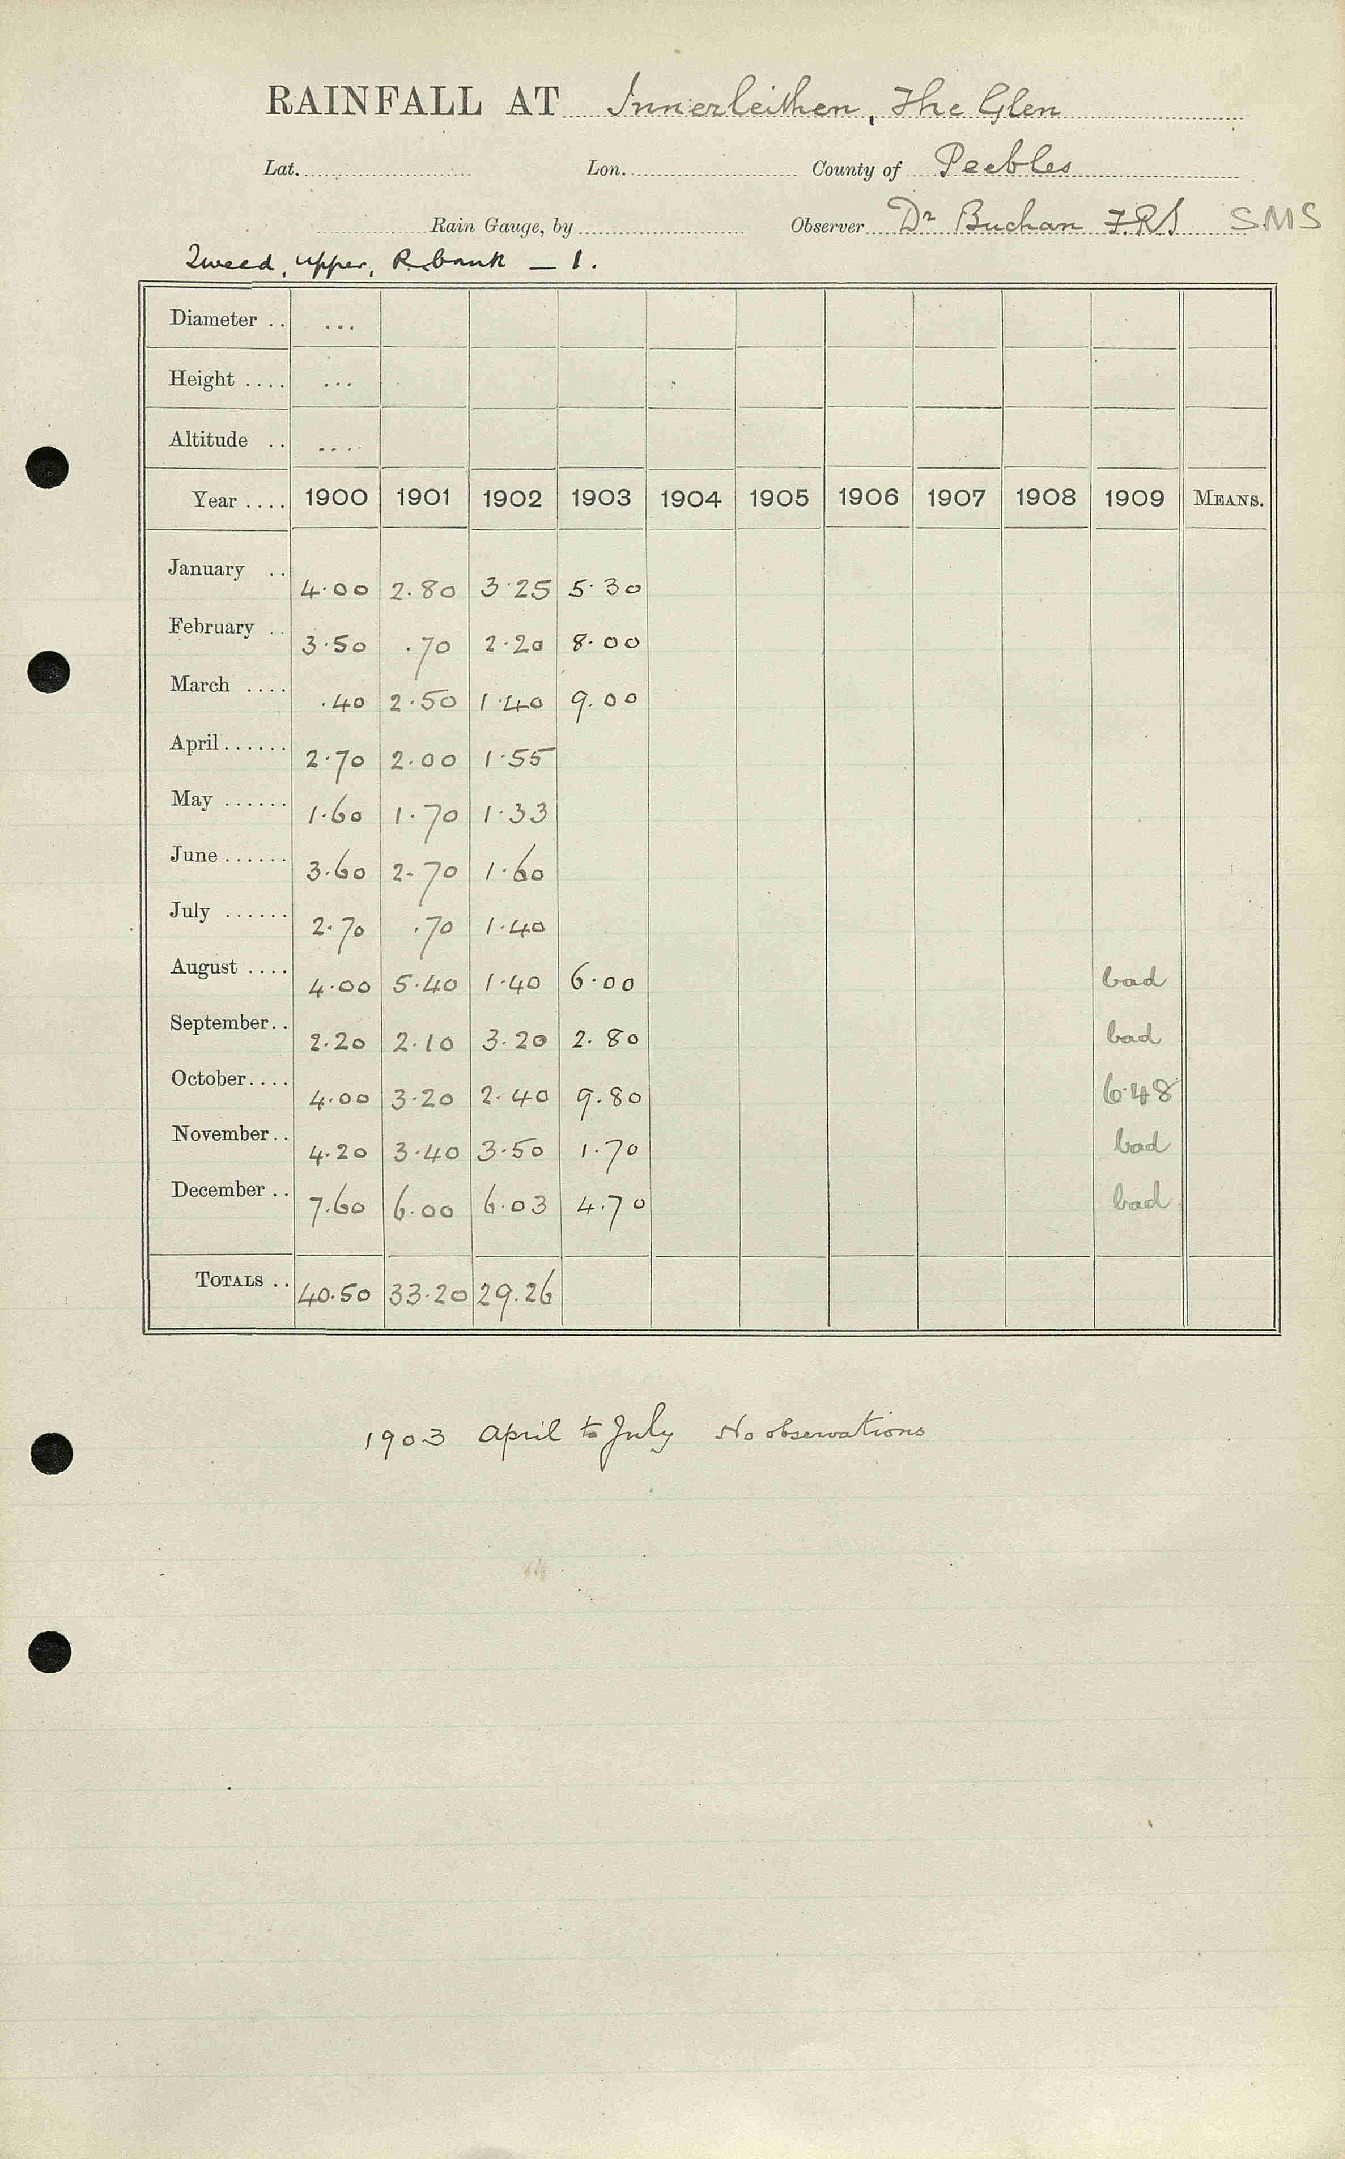 RAINFALL AT Innerleithen, The Glen
Lat. Lon. County of Peebles
Rain Gauge, by Observer Dr Buchan F.R.S SMS
Tweed, upper, R. bank — 1.
Diameter .. ...
Height .... ...
Altitude .. ....
Year .... 1900 1901 1902 1903 1904 1905 1906 1907 1908 1909 MEANS.
January .. 4.00 2.80 3.25 5.30
February .. 3.50 .70 2.20 8.00
March .... .40 2.50 1.40 9.00
April ...... 2.70 2.00 1.55
May ...... 1.60 1.70 1.33
June ...... 3.60 2.70 1.60
July ...... 2.70 .70 1.40
August .... 4.00 5.40 1.40 6.00 bad
September.. 2.20 2.10 3.20 2.80 bad
October.... 4.00 3.20 2.40 9.80 6.48
November.. 4.20 3.40 3.50 1.70 bad
December .. 7.60 6.00 6.03 4.70 bad
TOTALS .. 40.50 33.20 29.26
1903 April to July No observations